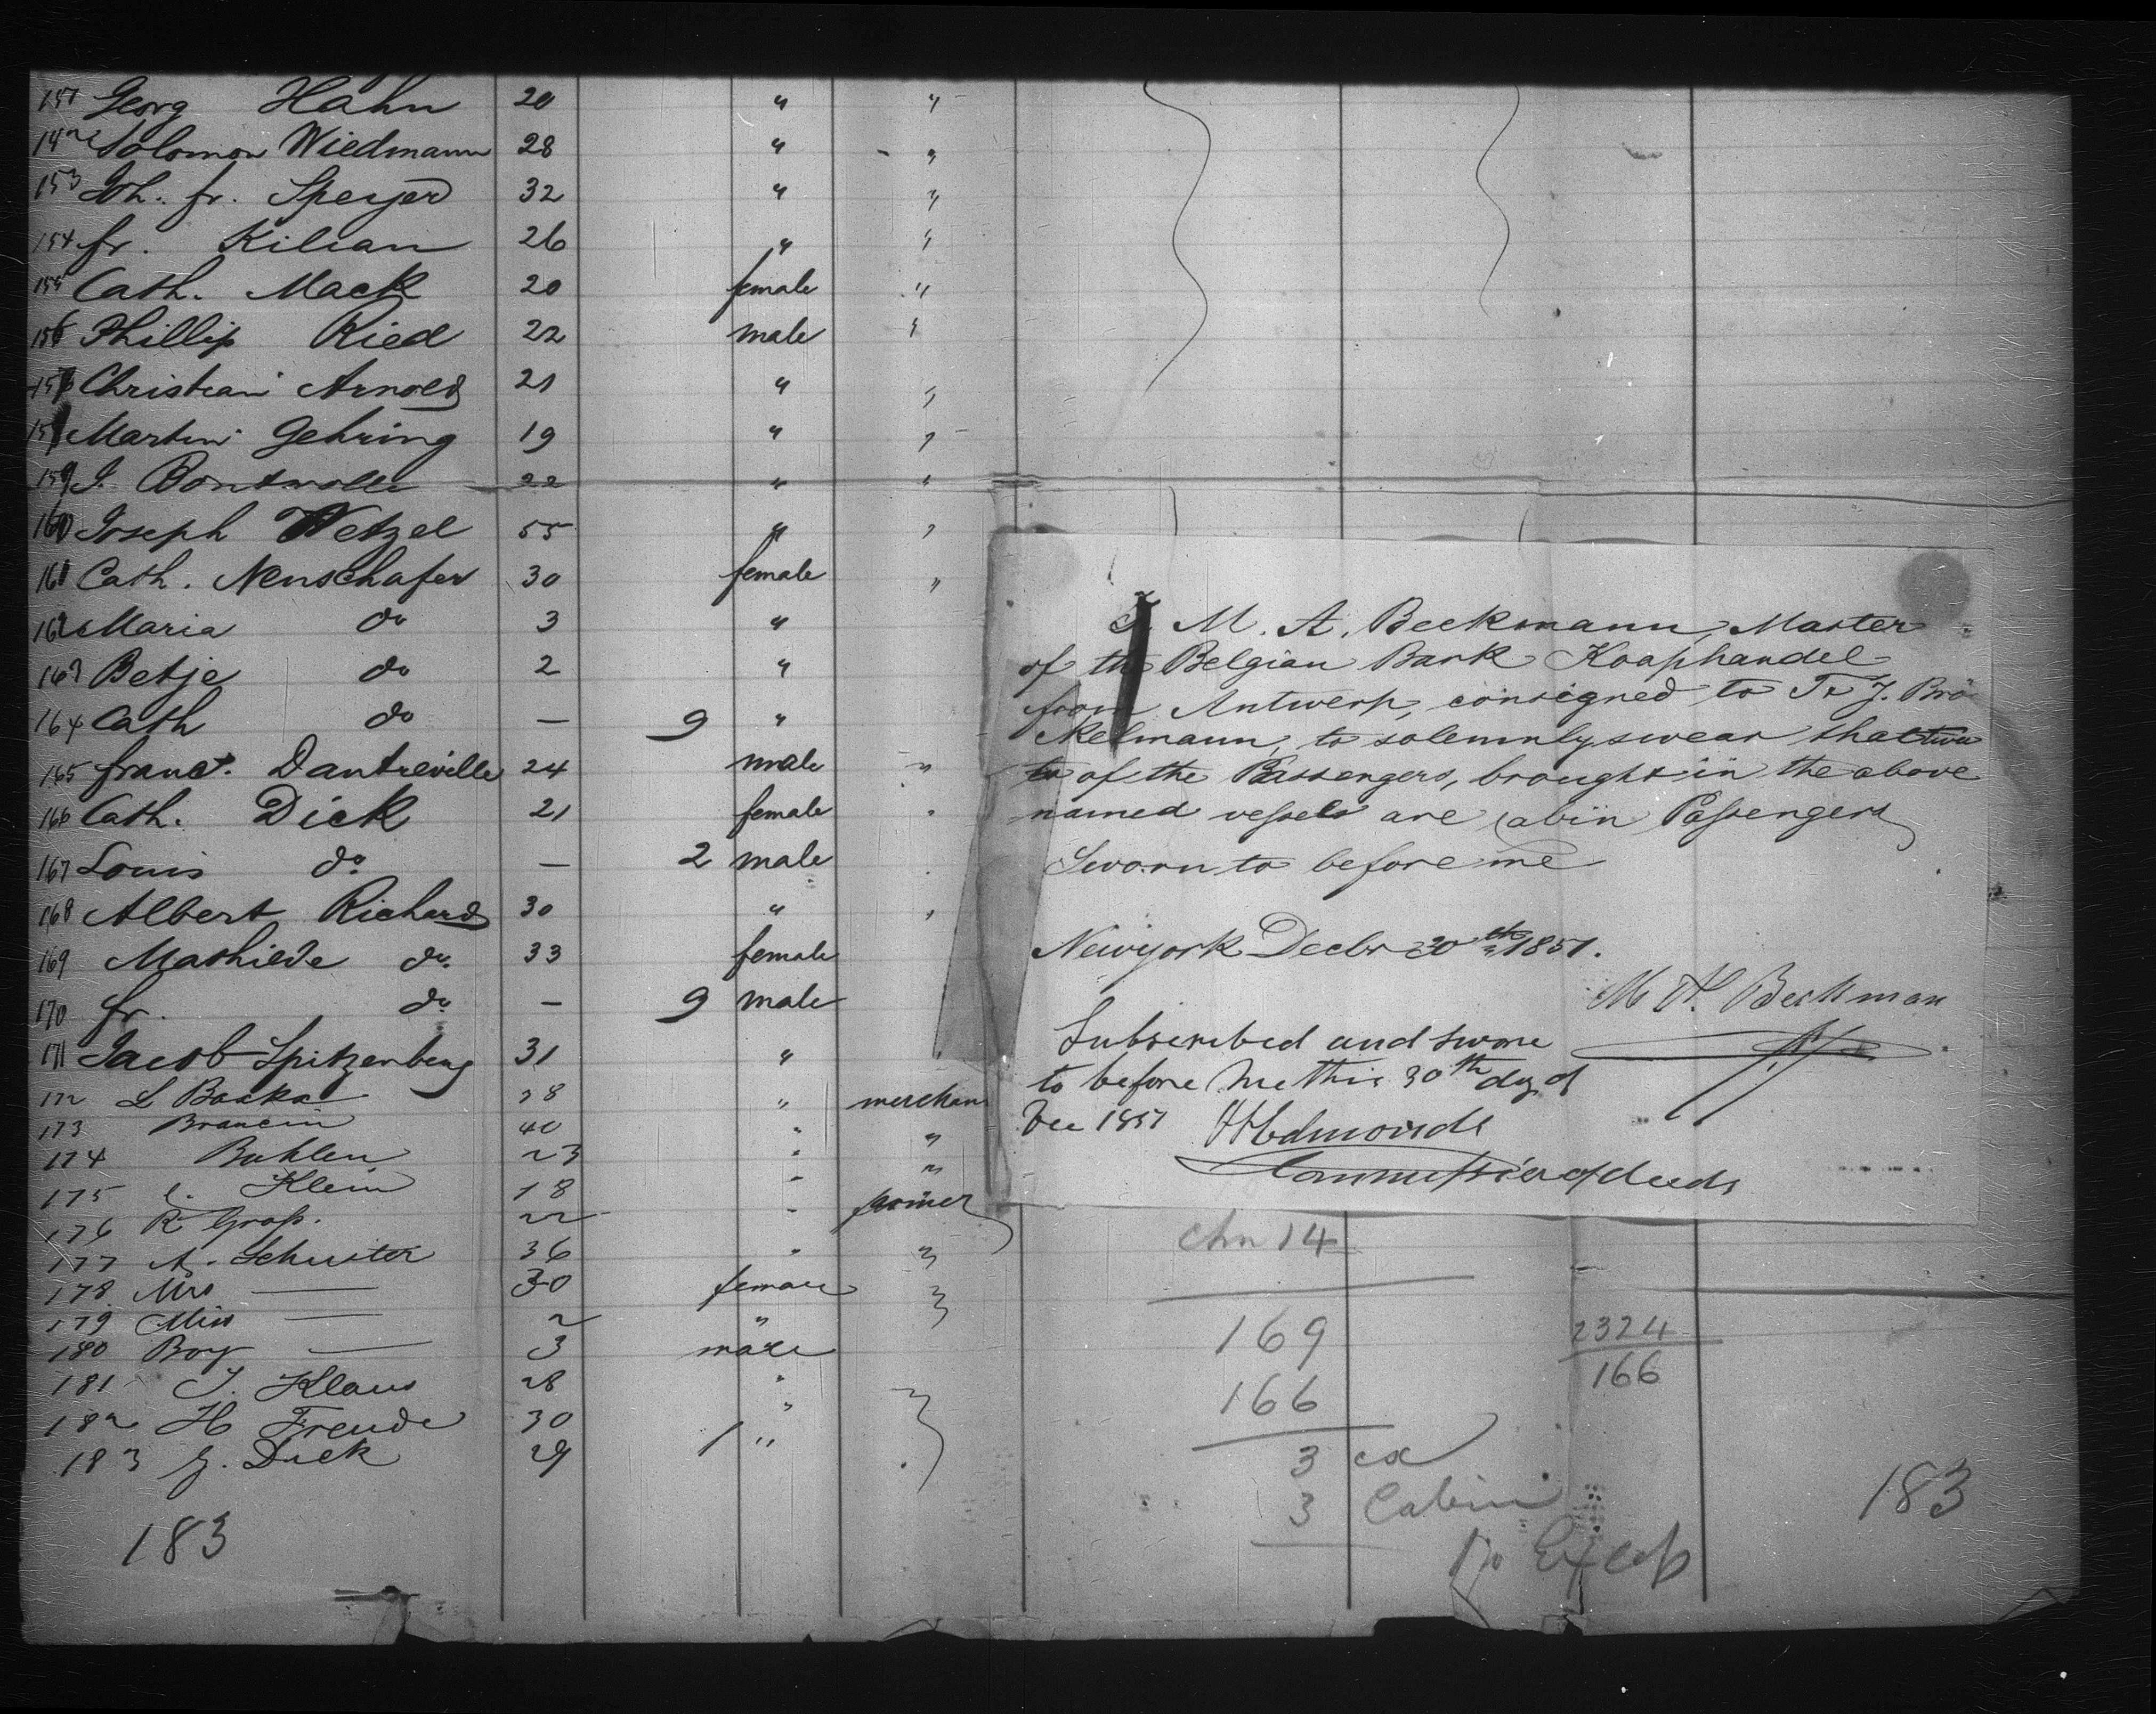 151 Georg Hahn 20 " "
Solomon Wiedmann 28 " "
153 Joh. fr. Speyer 32 " "
154 fr. Kilian 26 " "
155 Cath. Mack 20 female "
156 Phillip Ried 22 male "
157 Christian Arnold 21 " "
Martin Gehring 19 " "
159 J. 22 " "
160 Joseph Wetzel 55 " "
161 Cath. Nenschafer 30 female "
162 Maria do 3 "
163 Betje do 2 "
164 Cath do — 9 "
165 Dantreville 24 male "
166 Cath. Dick 21 female "
167 Louis do — 2 male
168 Albert Richard 30 " "
169 Mathilde do. 33 female
170 fr. do — 9 male
171 Jacob Spitzenberg 31 "
172 L 28 " merchan
173 40 " "
174 Buhlen 23 " "
175 Klein 18 "
176 R Groß. 22 "
177 A. Schuster 36 " "
178 Mrs — 30 female "
179 Miss — 2 "
180 Boy — 3 male
181 J. Klaus 28 "
182 H Freude 30 "
183 Dick 29 1 "
183
I. M. A. Beckmann, Master
of the Belgian Bark Koophandel
from Antwerp, consigned to J. Brö
kelmann, to solemnly swear that two
of the Passengers, brought in the above
named vessels are Cabin Passengers
Sworn to before me
Newyork Decbr 30th 1851.
M A. Beckman
Subscribed and swore
to before me this 30th day of
Dec 1851
Edmonds
Commissioner of deeds
14
169
166
3
3 Cabin
2324
166
183